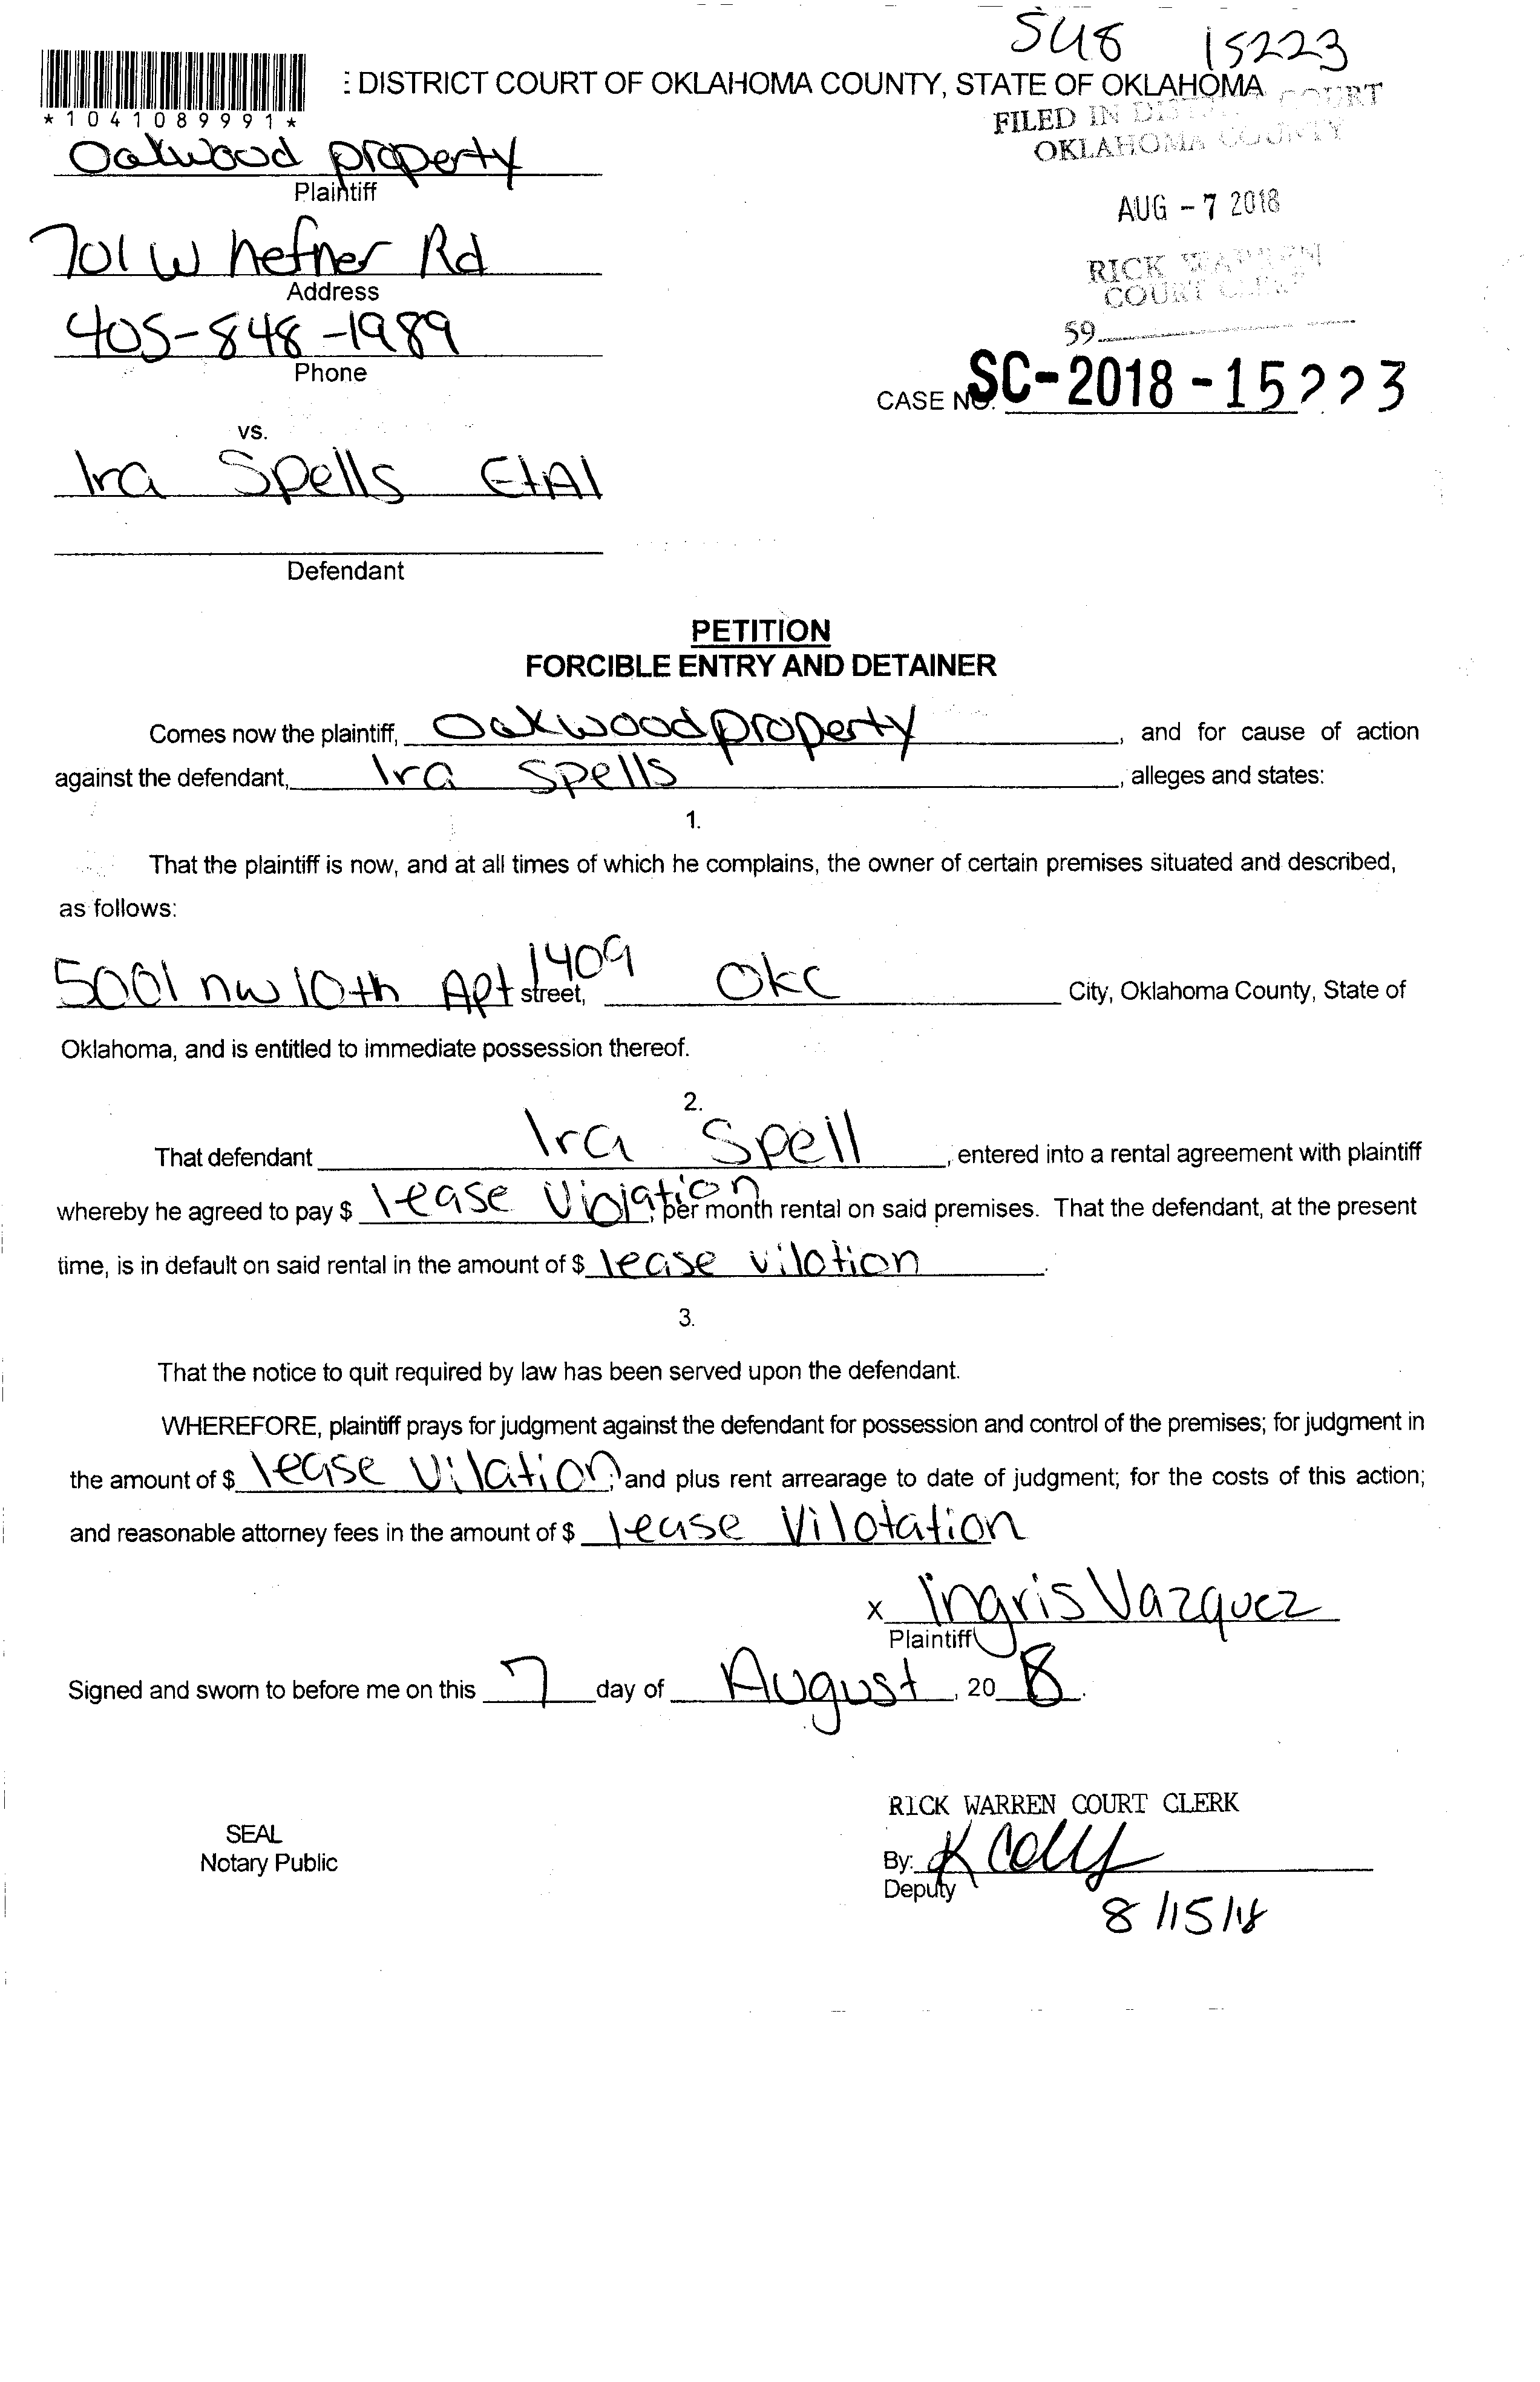 SC18 15223
: DISTRICT COURT OF OKLAHOMA COUNTY, STATE OF OKLAHOMA
*1041089991*
FILED IN DISTRICT COURT
OKLAHOMA COUNTY
Oakwood property
Plaintiff
AUG - 7 2018
701 W hefner Rd
Address
RICK WARREN
COURT CLERK
405-848-1989
Phone
59
CASE NO. SC-2018-15223
vs.
Ira Spells EtAl
Defendant
PETITION
FORCIBLE ENTRY AND DETAINER
Comes now the plaintiff, Oakwood property, and for cause of action
against the defendant, Ira Spells, alleges and states:
1.
That the plaintiff is now, and at all times of which he complains, the owner of certain premises situated and described,
as follows:
5001 nw 10th Apt 1409 street, Okc City, Oklahoma County, State of
Oklahoma, and is entitled to immediate possession thereof.
2.
That defendant Ira Spell, entered into a rental agreement with plaintiff
whereby he agreed to pay $ lease Violation, per month rental on said premises. That the defendant, at the present
time, is in default on said rental in the amount of $ lease vilation.
3.
That the notice to quit required by law has been served upon the defendant.
WHEREFORE, plaintiff prays for judgment against the defendant for possession and control of the premises; for judgment in
the amount of $ lease Vilation; and plus rent arrearage to date of judgment; for the costs of this action;
and reasonable attorney fees in the amount of $ lease Vilotation
x Ingris Vazquez
Plaintiff
Signed and sworn to before me on this 7 day of August, 20 18.
RICK WARREN COURT CLERK
SEAL
Notary Public
By: K
Deputy
8/15/18